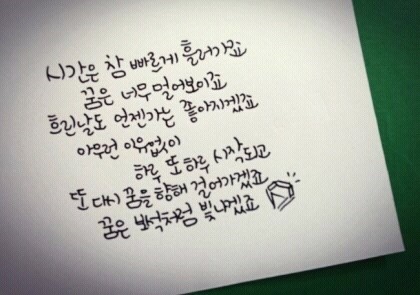 시간은 참 빠르게 흘러가죠
꿈은 너무 멀어보이죠
흐린날도 언젠가는 좋아지겠죠
아무런 이유없이
하루 또 하루 시작되고
또 다시 꿈을 향해 걸어가겠죠
꿈은 보석처럼 빛나겠죠